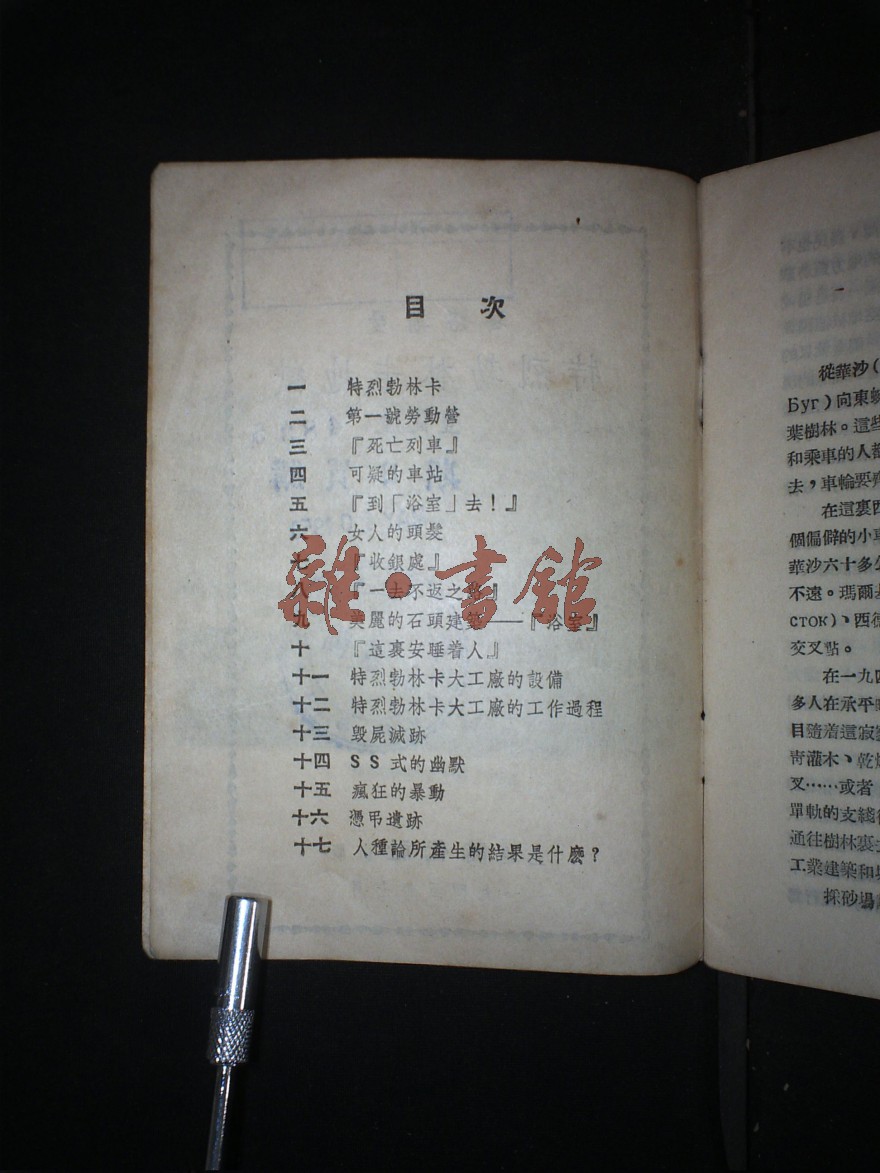 目次
一 特烈勃林卡
二 第一號勞動營
三 『死亡列車』
四 可疑的車站
五 『到「浴室」去!』
六 女人的頭髮
七 『收銀處』
八 『一去不返之路』
九 美麗的石頭建築——『浴室』
十 『這裏安睡着人』
十一 特烈勃林卡大工廠的設備
十二 特烈勃林卡大工廠的工作過程
十三 毀屍滅跡
十四 SS式的幽默
十五 瘋狂的暴動
十六 憑弔遺跡
十七 人種論所產生的結果是什麽?
雜·書館
從華沙(
Буг)向東
葉樹林。這些
和乘車的人都
去,車輪要
在這裏西
個偏僻的小車
華沙六十多公
不遠。瑪爾
сток)、西德
交叉點。
在一九四
多人在承平
目隨着這寂
靑灌木、乾
叉……或者
單軌的支綫
通往樹林裏
工業建築和
採砂場